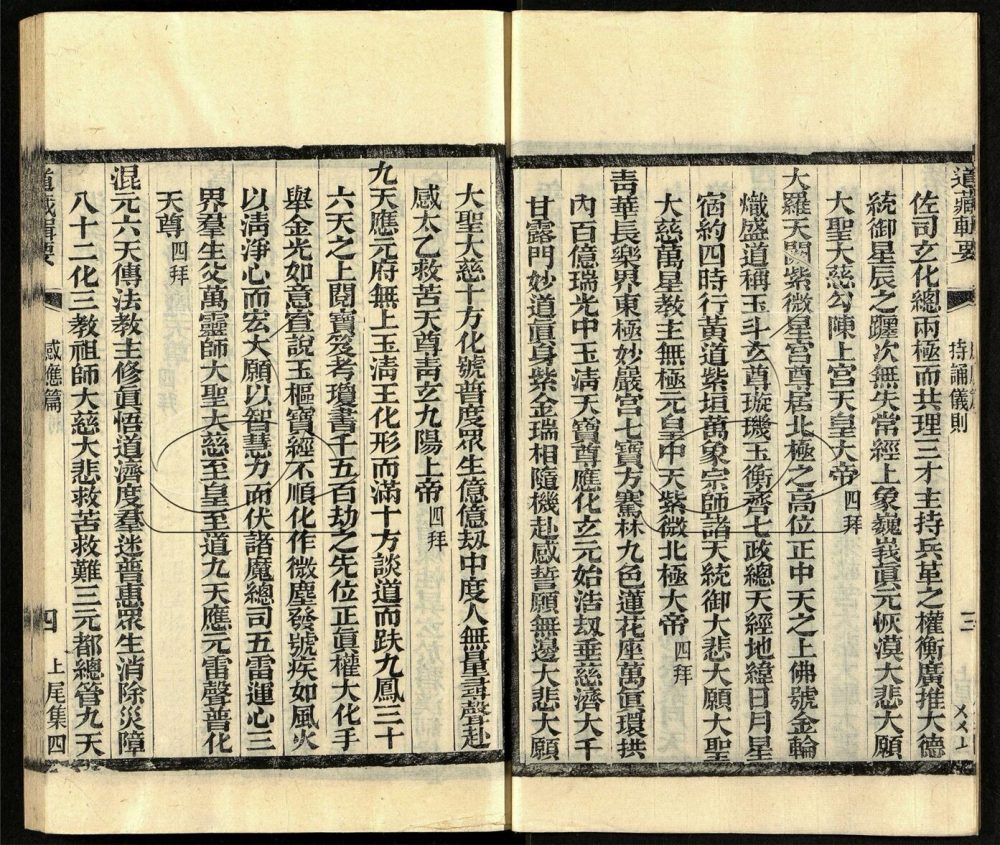 道藏輯要
持誦儀則
三
佐司玄化總兩極而共理三才主持兵革之權衡廣推大德
統御星辰之躔次無失常經上象巍峩眞元恢漠大悲大願
大聖大慈勾陳上宮天皇大帝 四拜
大羅天闕紫微星宮尊居北極之高位正中天之上佛號金輪
熾盛道稱玉斗玄尊璇璣玉衡齊七政總天經地緯日月星
宿約四時行黃道紫垣萬象宗師諸天統御大悲大願大聖
大慈萬星教主無極元皇中天紫微北極大帝 四拜
靑華長樂界東極妙嚴宮七寶方騫林九色蓮花座萬眞環拱
內百億瑞光中玉淸天寶尊應化玄元始浩刼垂慈濟大千
甘露門妙道眞身紫金瑞相隨機赴感誓願無邊大悲大願
大聖大慈十方化號普度眾生億億刼中度人無量尋聲赴
感太乙救苦天尊靑玄九陽上帝 四拜
九天應元府無上玉淸王化形而滿十方談道而趺九鳳三十
六天之上閱寶笈考瓊書千五百劫之先位正眞權大化手
舉金光如意宣說玉樞寶經不順化作微塵發號疾如風火
以淸凈心而宏大願以智慧力而伏諸魔總司五雷運心三
界羣生父萬靈師大聖大慈至皇至道九天應元雷聲普化
天尊 四拜
混元六天傳法教主修眞悟道濟度羣迷普惠眾生消除災障
八十二化三教祖師大慈大悲救苦救難三元都總管九天
道藏輯要
感應篇
四
上尾集四